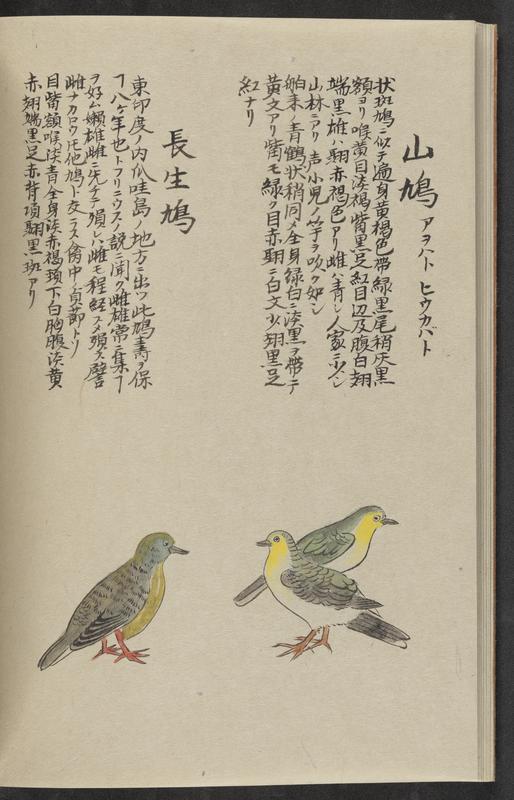 山鳩 アヲハト ヒウカバト
状斑鳩ニ似テ遍身黄褐色帯緑黒尾稍灰黒
額ヨリ喉黄目淡褐觜黒足紅目辺及腹白翅
端黒雄ハ翮赤褐色アリ雌ハ青シ人家ニ少シ
山林ニアリ声小児ノ竽ヲ吹ク如シ
舶来ノ青鶴状稍同メ全身緑白ニ淡黒ヲ帯テ
黄文アリ觜モ緑ク目赤翮ニ白文少翅黒足
紅ナリ
長生鳩
東印度ノ内瓜哇島ノ地方ニ出ツ此鳩壽ヲ保
フ八ケ年也トフリニウスノ説ニ聞ク雌雄常ニ集フ
ヲ好ム嬾雄雌ニ先チテ殞レハ雌モ程経スメ殞ス譬
雌ナカロウ圧他鳩ト交ニス禽中ノ貞節トリ
目觜額喉淡青全身淡赤褐頚下白胸腹淡黄
赤翅端黒足赤背項翮黒斑アリ